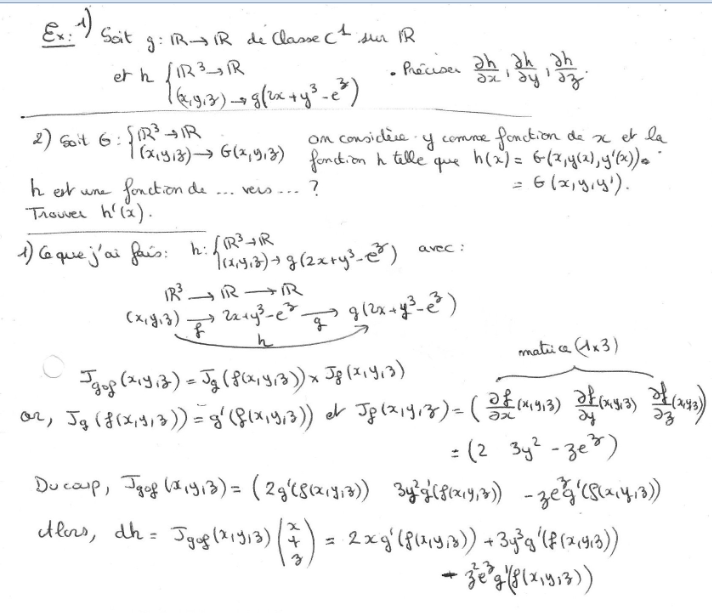 Ex: 1) Soit g: ℝ→ℝ de classe C¹ sur ℝ
et h { ℝ³→ℝ
(x,y,z)→g(2x+y³-e^z) • Préciser ∂h/∂x, ∂h/∂y, ∂h/∂z.
2) Soit G: { ℝ³→ℝ
(x,y,z)→G(x,y,z) on considère y comme fonction de x et la
fonction h telle que h(x) = G(x,y(x),y'(x)).
= G(x,y,y').
h est une fonction de ... vers ... ?
Trouver h'(x).
1) Ce que j'ai fais: h: { ℝ³→ℝ
(x,y,z)→g(2x+y³-e^z) avec :
ℝ³ → ℝ → ℝ
(x,y,z) → 2x+y³-e^z → g(2x+y³-e^z)
f g
h
matrice (1x3)
J_gof(x,y,z) = J_g(f(x,y,z)) x J_f(x,y,z)
or, J_g(f(x,y,z)) = g'(f(x,y,z)) et J_f(x,y,z) = ( ∂f/∂x(x,y,z) ∂f/∂y(x,y,z) ∂f/∂z(x,y,z))
= (2 3y² -ze^z)
Du coup, J_gof(x,y,z) = (2g'(f(x,y,z)) 3y²g'(f(x,y,z)) -ze^z g'(f(x,y,z))
Alors, dh = J_gof(x,y,z) (x y z) = 2xg'(f(x,y,z)) + 3y³g'(f(x,y,z))
- z²e^z g'(f(x,y,z))